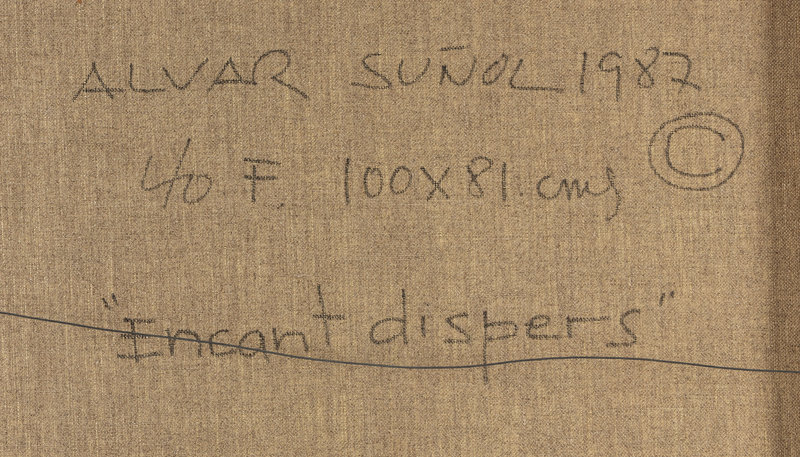 ALVAR SUÑOL 1987
40 F. 100X81. cms ©
"Encant dispers"